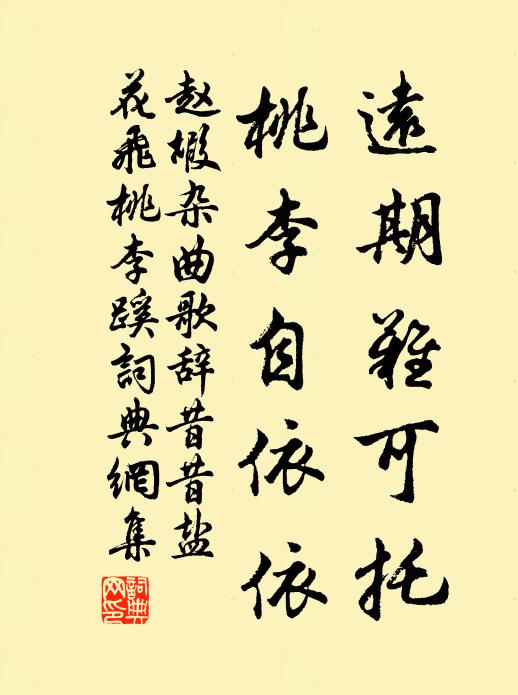 遠期難可托
桃李自依依
赵嘏杂曲歌辞昔昔盐
花飛桃李蹊詞典網集
詞典
网印